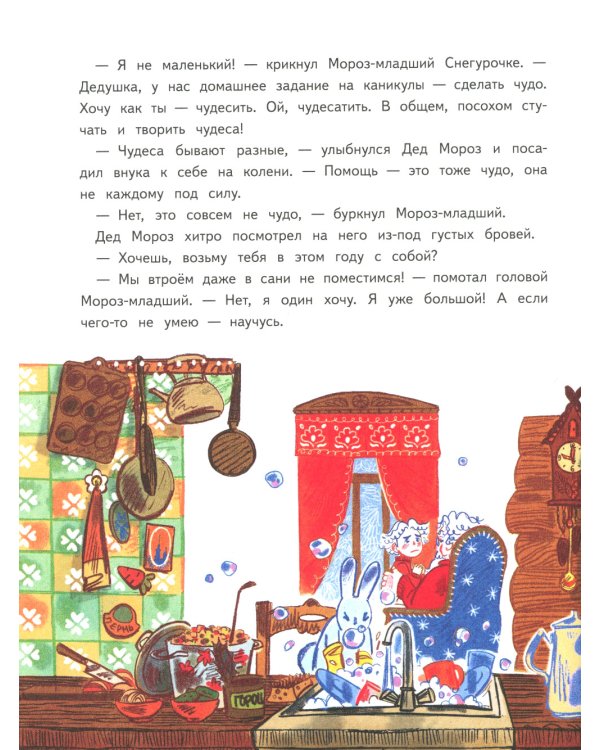 — Я не маленький! — крикнул Мороз-младший Снегурочке. —
Дедушка, у нас домашнее задание на каникулы — сделать чудо.
Хочу как ты — чудесить. Ой, чудесатить. В общем, посохом сту-
чать и творить чудеса!
— Чудеса бывают разные, — улыбнулся Дед Мороз и поса-
дил внука к себе на колени. — Помощь — это тоже чудо, она
не каждому под силу.
— Нет, это совсем не чудо, — буркнул Мороз-младший.
Дед Мороз хитро посмотрел на него из-под густых бровей.
— Хочешь, возьму тебя в этом году с собой?
— Мы втроём даже в сани не поместимся! — помотал головой
Мороз-младший. — Нет, я один хочу. Я уже большой! А если
чего-то не умею — научусь.
ПЕРМЬ
ГОРОШ